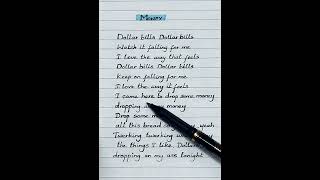 Money
Dollar bills Dollar bills
Watch it falling for me
I love the way that feels
Dollar bills Dollar bills
Keep on falling for me
I love the way it feels
I came here to drop some money
dropping money
Drop some
all this bread so yeah
Twerking twerking
the things I like. Dolla
dropping on my ass tonight